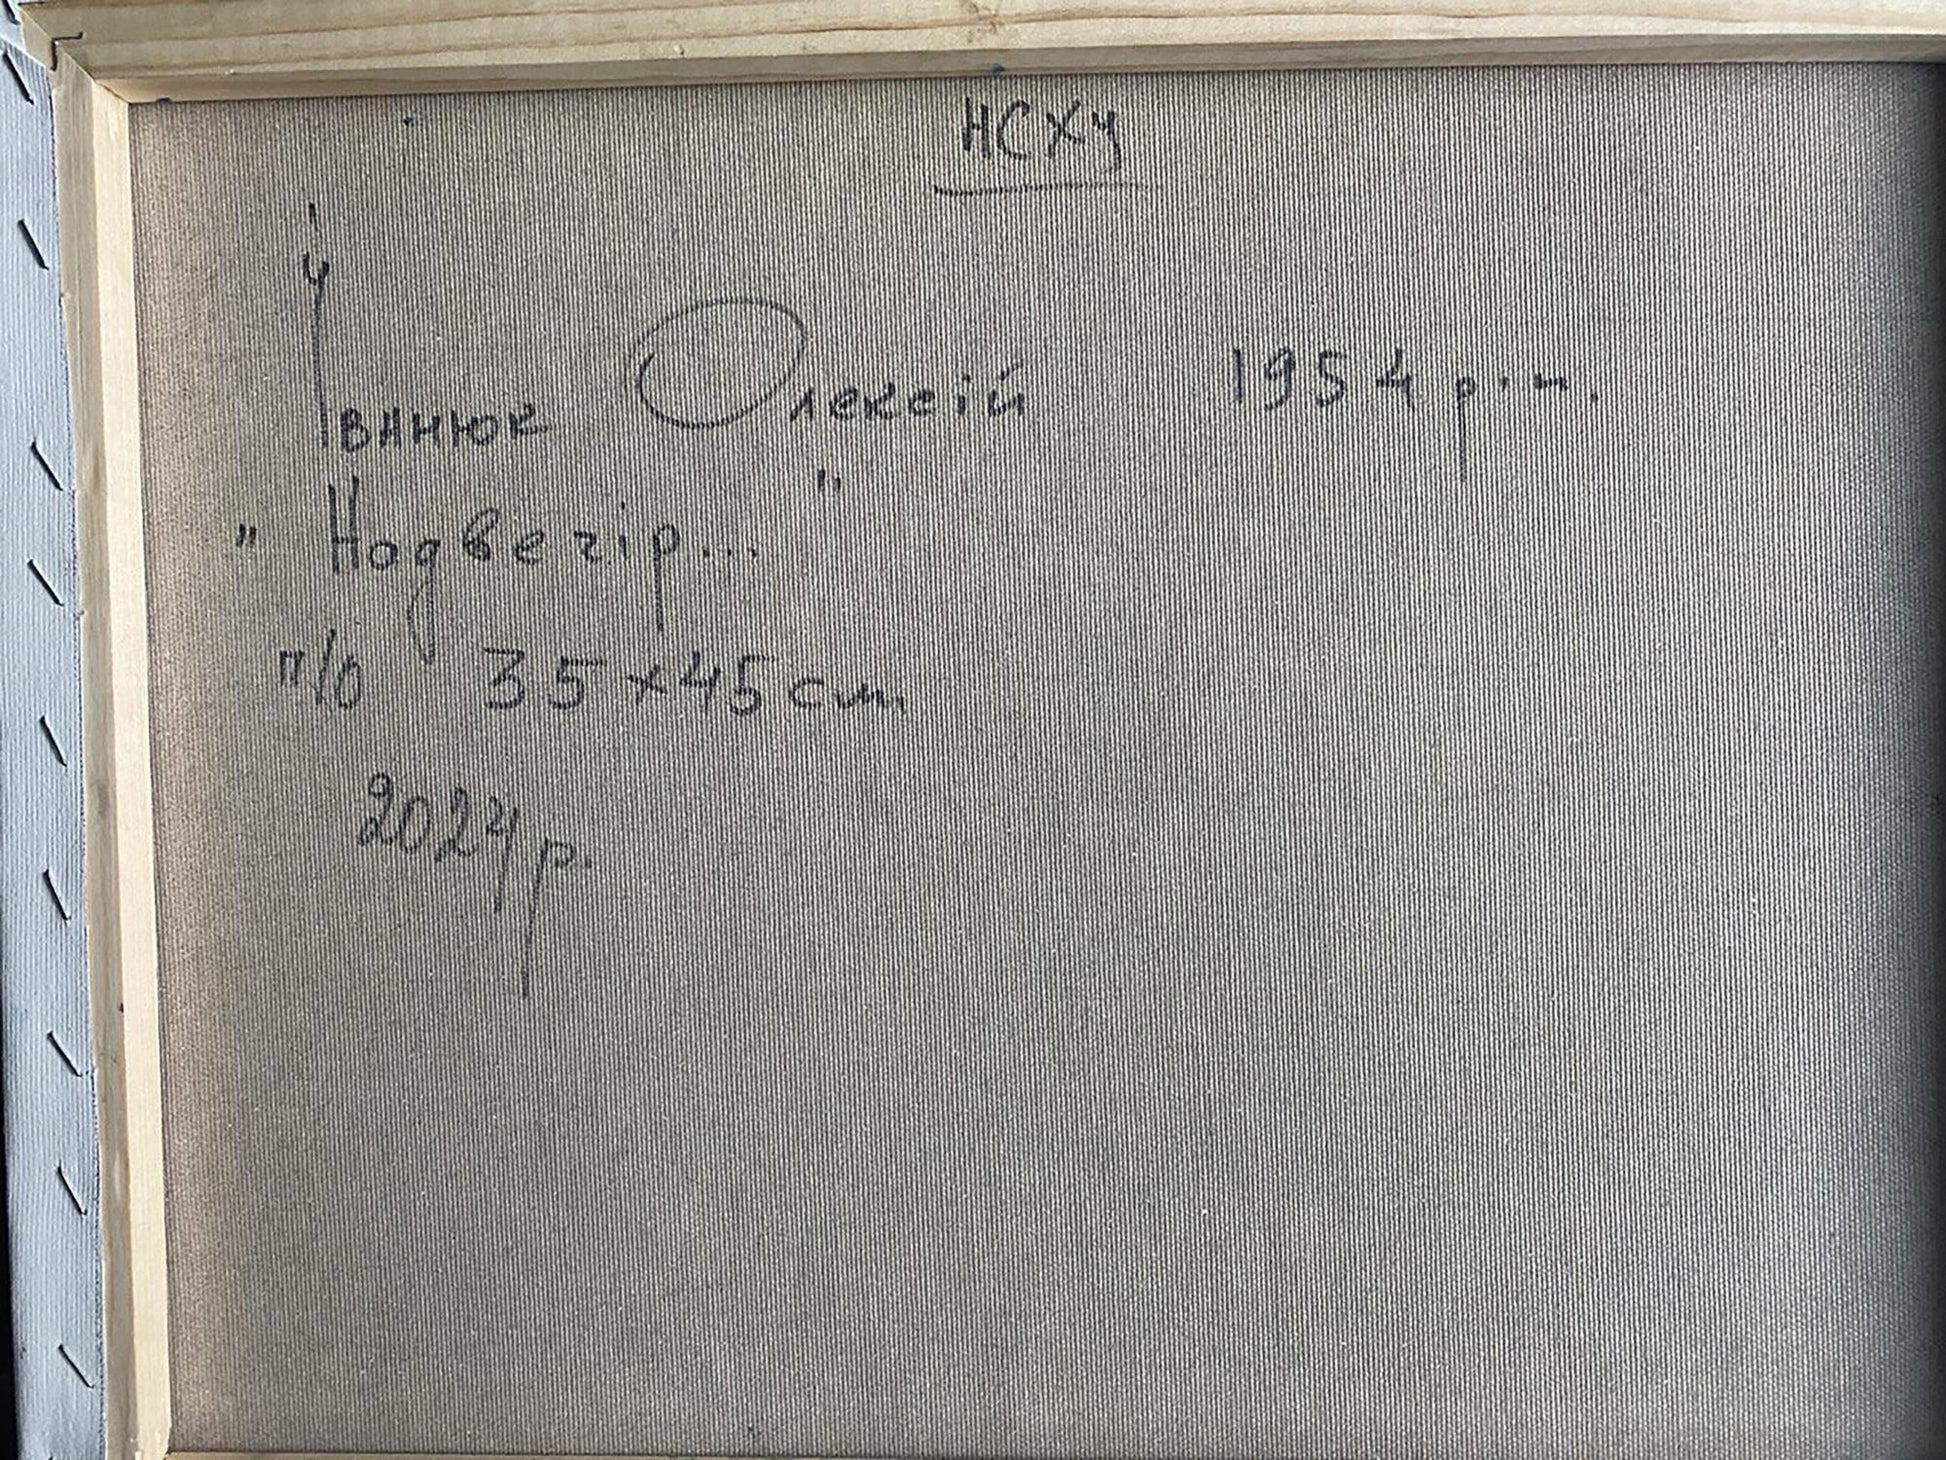 НСХУ
Іванюк Олексій 1954 р.н.
"Надвечір..."
п/о 35×45 см.
2024 р.